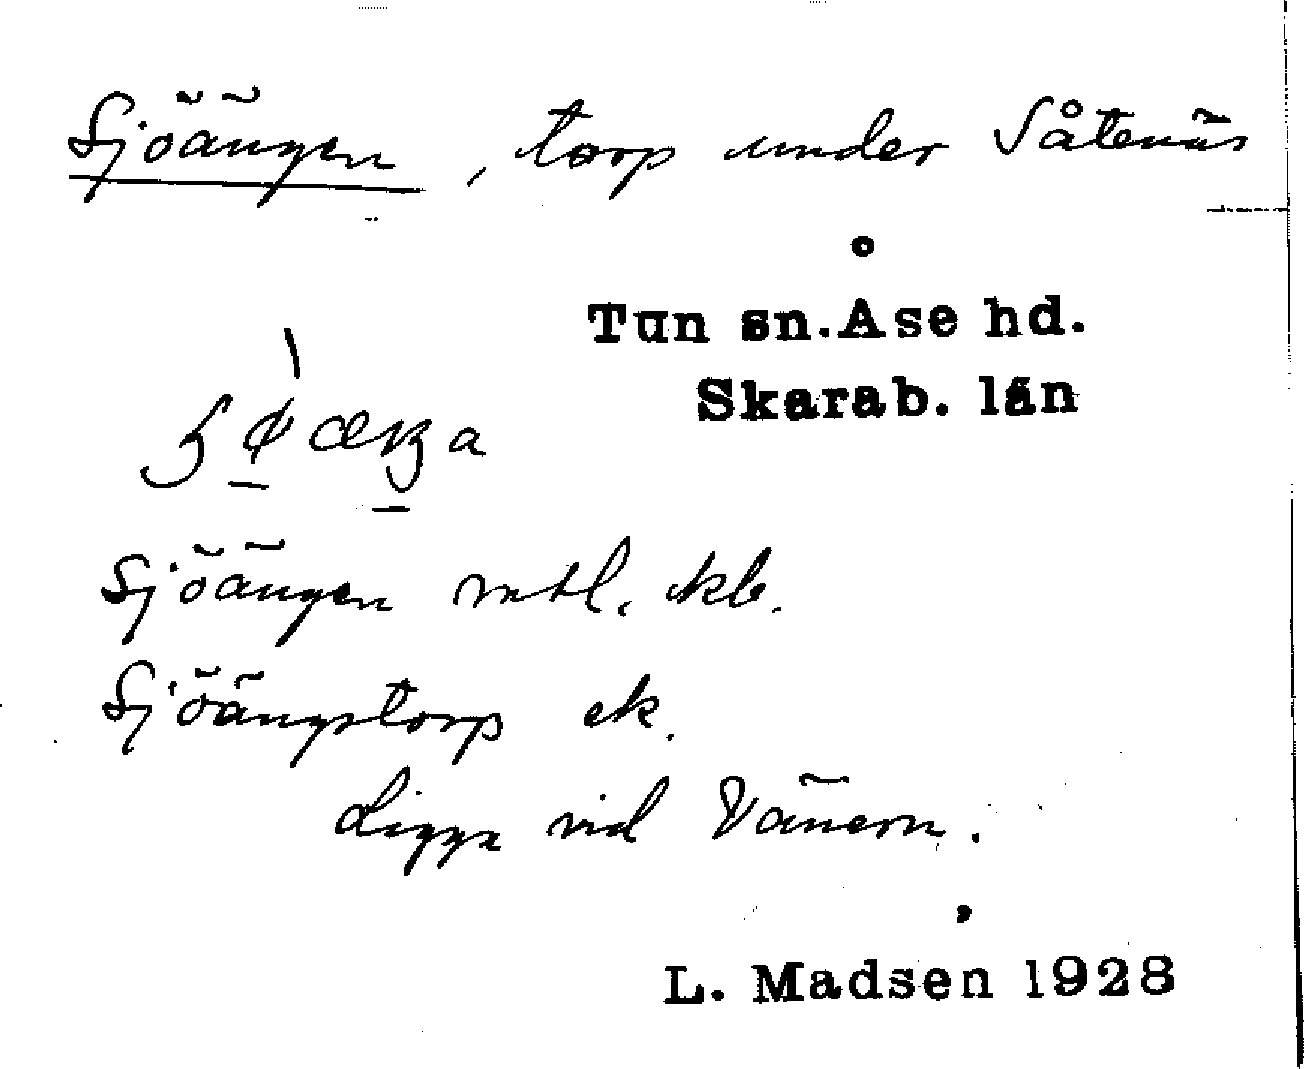 Sjöängen, torp under Såtenäs
Tun sn. Åse hd.
Skarab. län
Sjöängen mtl. kb.
Sjöängstorp ek.
Ligger vid Vänern.
L. Madsen 1928